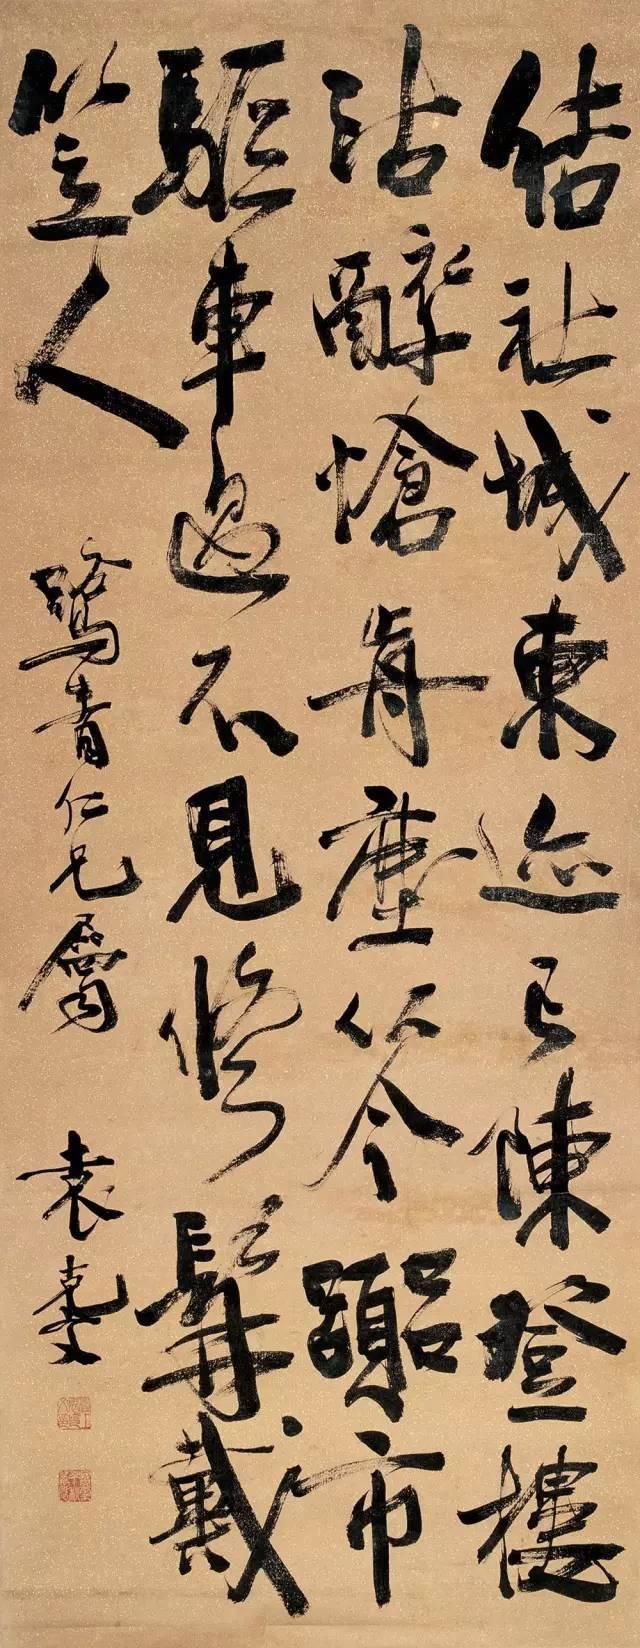 結社城東迹已陳登樓
沽醉愴前塵從今市
驅車過不見修髯戴
笠人
鷺青仁兄屬
袁克文